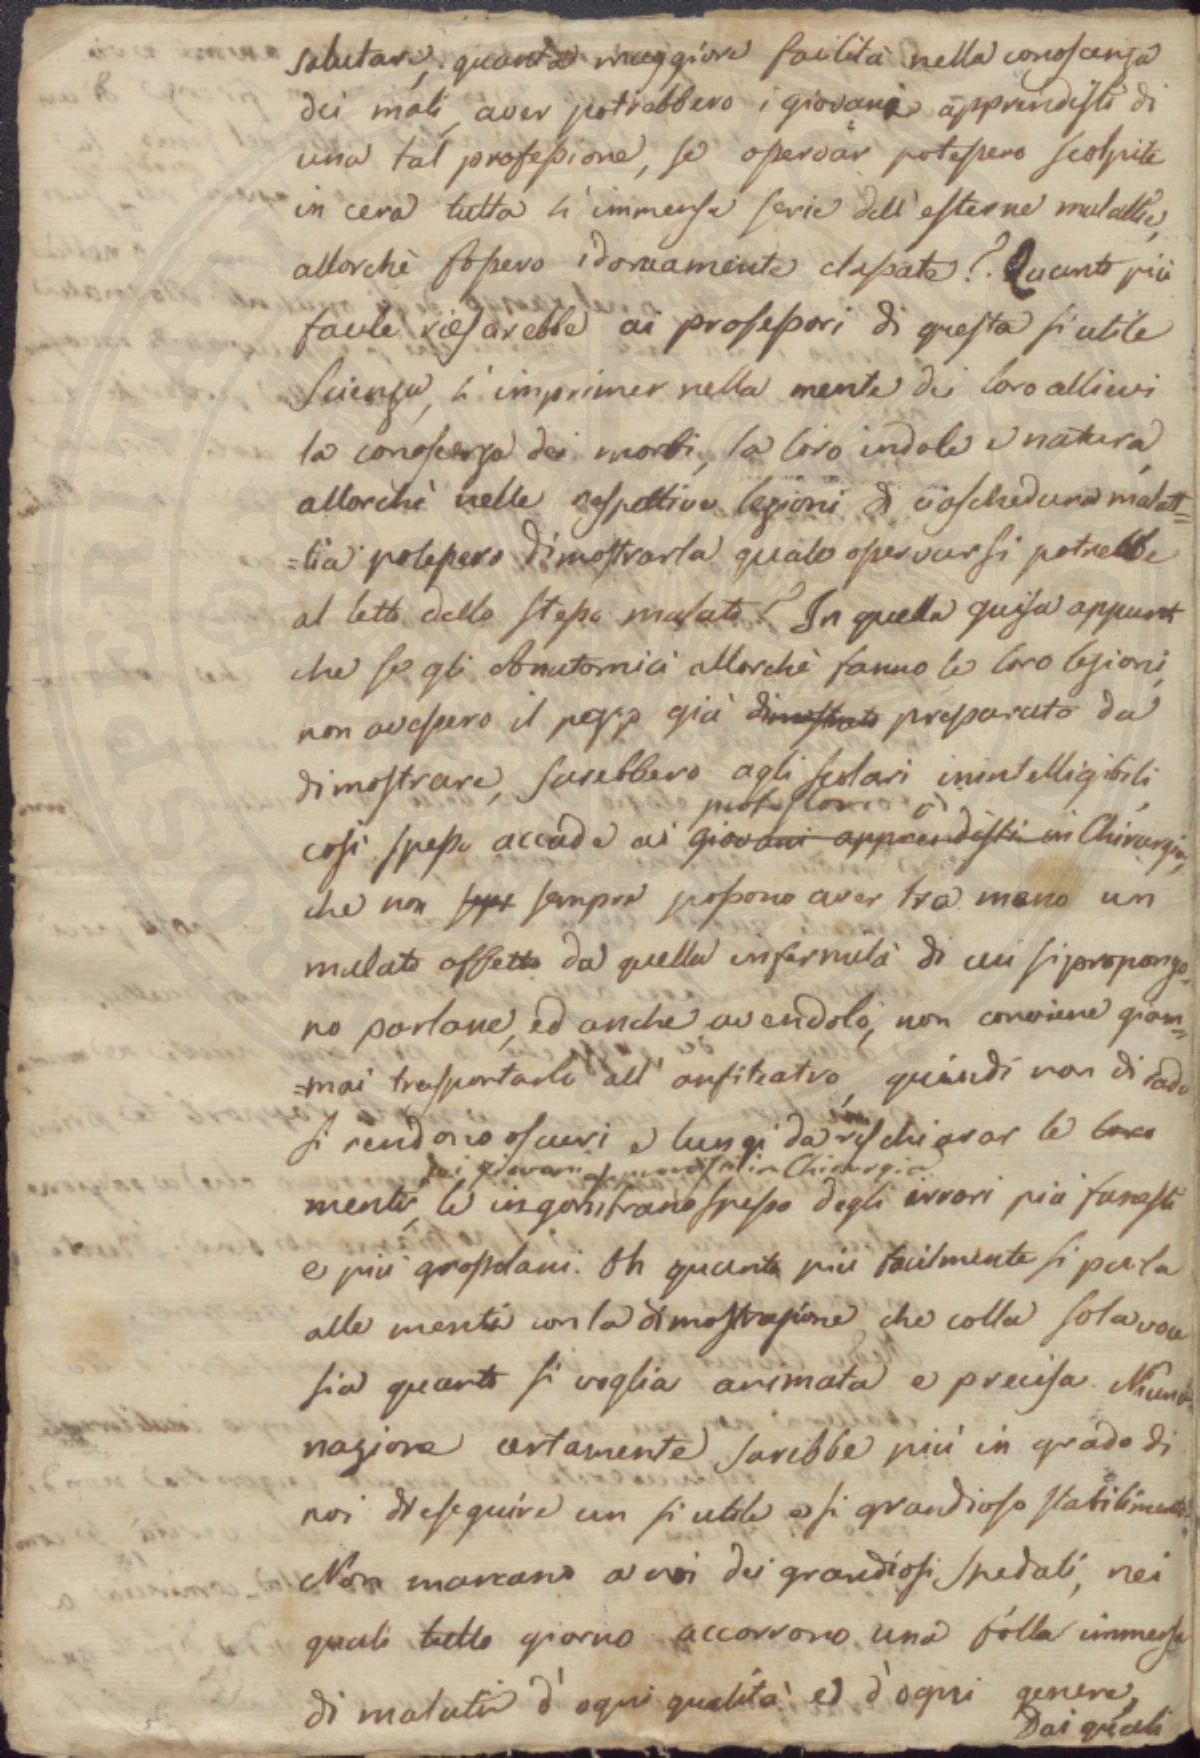 salutare, quanta maggiore facilità nella conoscenza
dei mali, aver potrebbero i giovani apprendisti di
una tal professione, se osservar potessero scolpite
in cera tutta l'immensa serie dell'esterne malattie,
allorchè fossero idoneamente classate? Quanto più
facile riescirebbe ai professori di questa sì utile
Scienza, l'imprimer nella mente dei loro allievi
la conoscenza dei morbi, la loro indole e natura,
allorchè nelle respettive lezioni di ciascheduna malat=
=tia potessero dimostrarla quale osservarsi potrebbe
al letto dello stesso malato? In quella guisa appunto
che se gli Anatomici allorchè fanno le loro lezioni,
non avessero il pezzo già dimostrato preparato da
dimostrare, sarebbero agli scolari inintelligibili,
professori di
così spesso accade ai giovani apprendisti in Chirurgia,
che non sempre possono aver tra mano un
malato affetto da quella infermità di cui si propongo=
no parlare, ed anche avendolo, non conviene giam=
=mai trasportarlo all'anfiteatro, quindi non di rado
si rendono oscuri e lungi da rischiarar le loro
dei giovani apprendisti in Chirurgia
menti, le ingombrano spesso degli errori più funesti
e più grossolani. Oh quanto più facilmente si parla
alle menti con la dimostrazione che colla sola voce
sia quanto si voglia animata e precisa. Niuna
nazione certamente sarebbe più in grado di
noi di eseguire un sì utile e sì grandioso stabilimento.
Non mancano a noi dei grandiosi Spedali, nei
quali tutto giorno accorrono una folla immensa
di malati d'ogni qualità ed d'ogni genere,
Dai quali